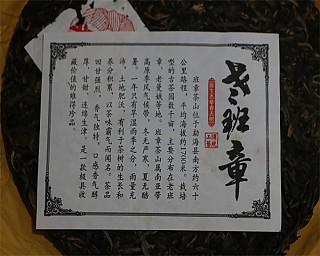 老班章
班章茶山位于勐海县南方约六十
公里路程，平均海拔约1700米。栽培
型的古茶园数千亩，主要分布在老班
章、老曼娥等地。班章茶山属南亚带
高原季风气候带，冬无严寒，夏无酷
暑。一年只有旱湿雨季之分，雨量充
沛，土地肥沃，有利于茶树的生长和
养分积累，以茶味霸气而闻名。茶品
回甘强烈，香气独特，口感香气醇
厚，甘甜，生绵生津。是一款极具收
藏价值的难得珍品。